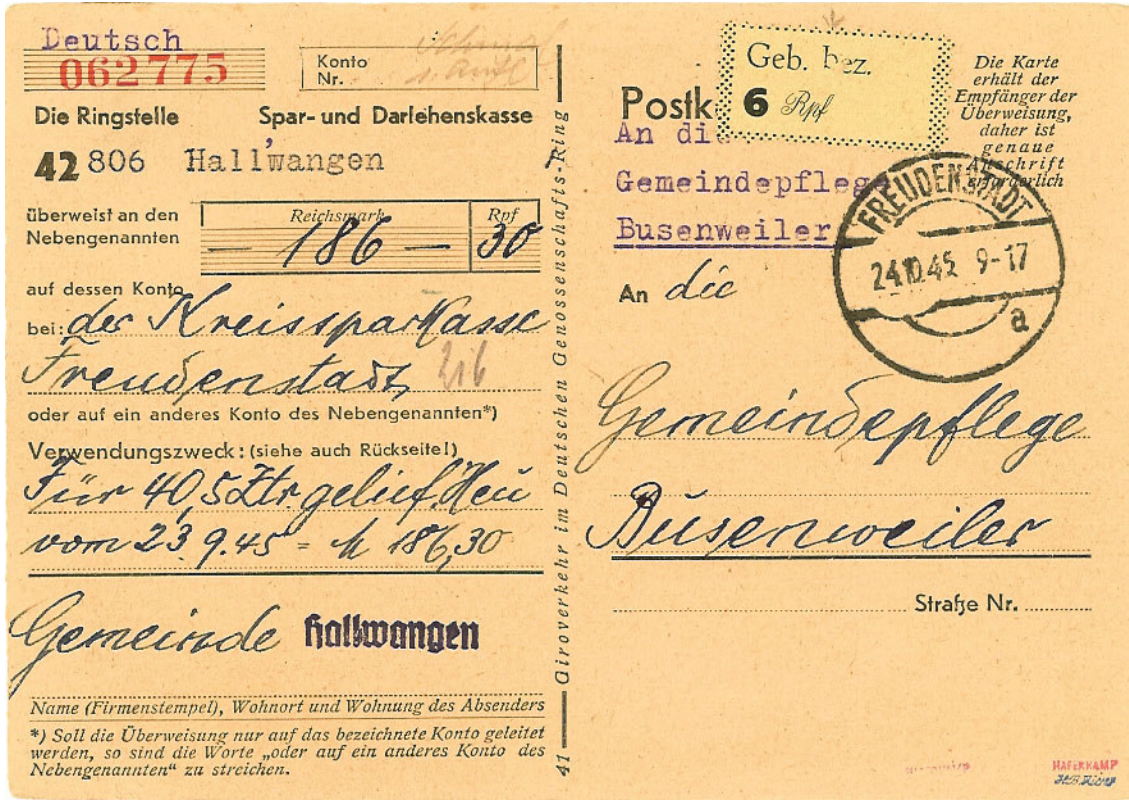 Deutsch
062775
Konto
Nr.
Die Ringstelle Spar- und Darlehenskasse
42 806 Hallwangen
überweist an den
Nebengenannten
Reichsmark Rpf
— 186 — 30
auf dessen Konto
bei: der Kreissparkasse
Freudenstadt, 216
oder auf ein anderes Konto des Nebengenannten*)
Verwendungszweck: (siehe auch Rückseite!)
Für 40,5 Ztr. gelief. Heu
vom 23.9.45 = M 186,30
Gemeinde Hallwangen
Name (Firmenstempel), Wohnort und Wohnung des Absenders
*) Soll die Überweisung nur auf das bezeichnete Konto geleitet
werden, so sind die Worte „oder auf ein anderes Konto des
Nebengenannten“ zu streichen.
41 — Giroverkehr im Deutschen Genossenschafts-Ring —
Postk
Geb. bez.
6 Rpf
Die Karte
erhält der
Empfänger der
Überweisung,
daher ist
genaue
Anschrift
erforderlich
An di
Gemeindepflege
Busenweiler
FREUDENSTADT
24.10.45 9-17
a
An die
Gemeindepflege
Busenweiler
Straße Nr.
HAFERKAMP